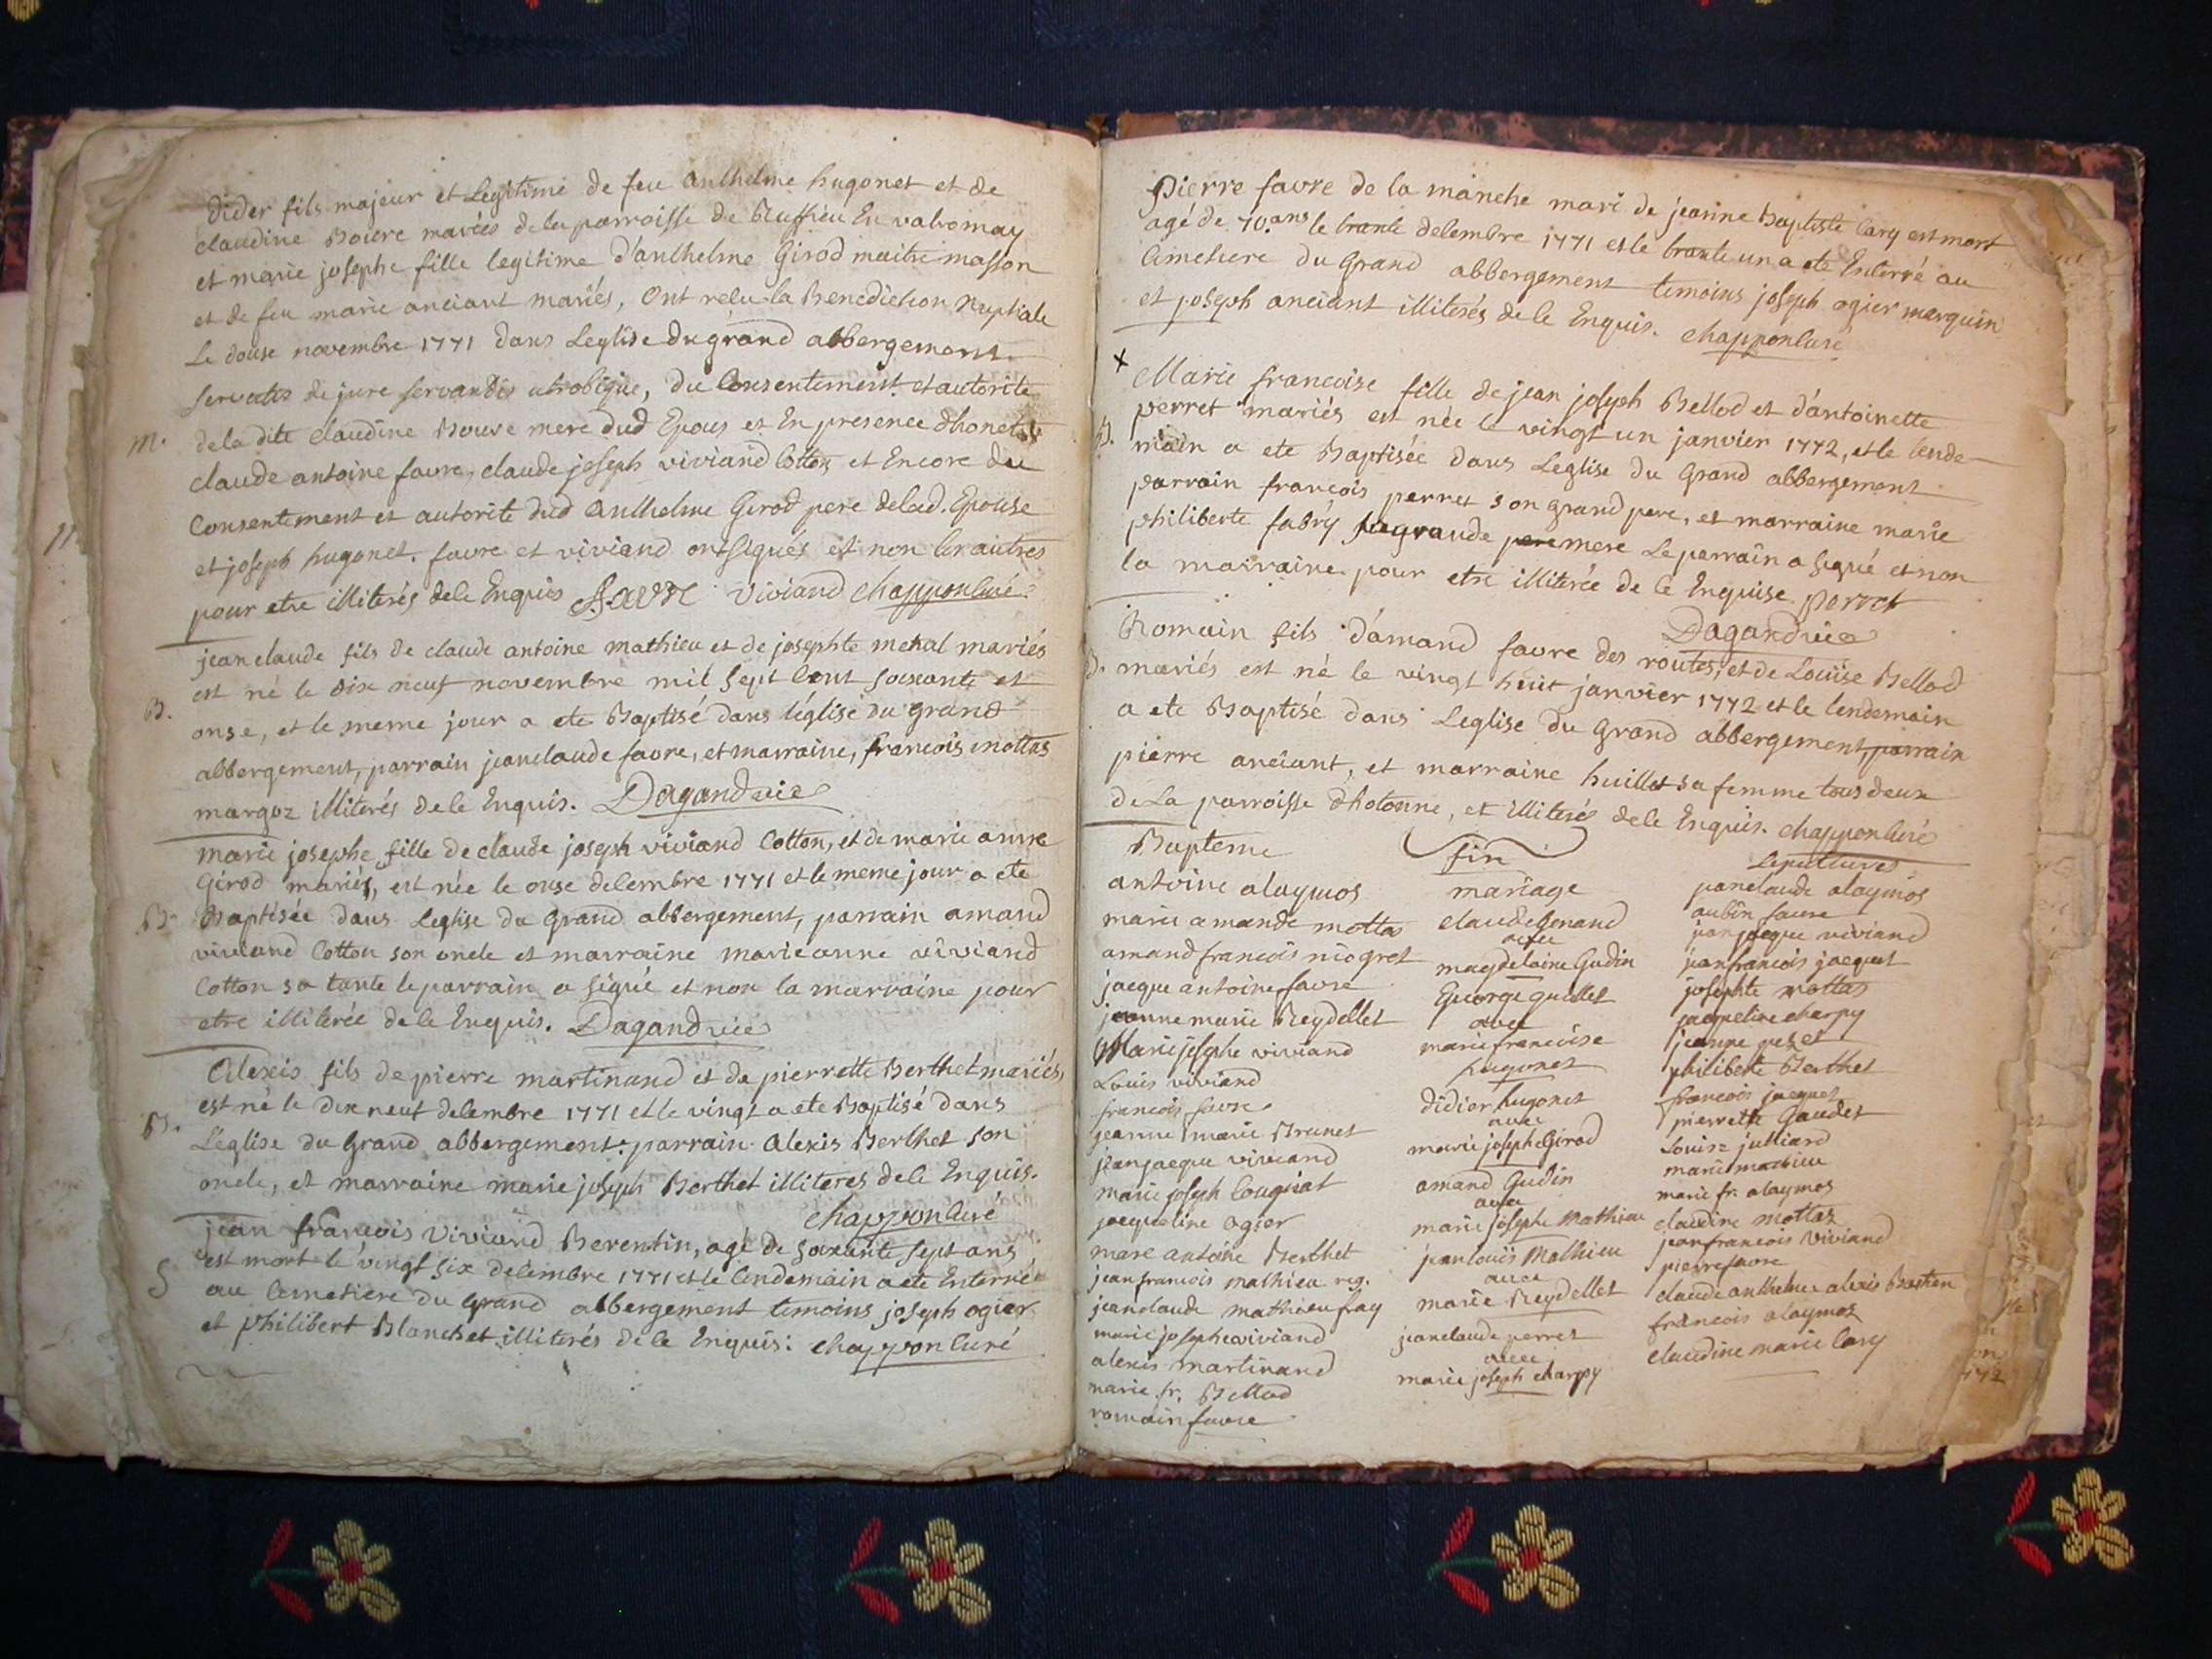 Didier fils majeur et Legitime de feu Anthelme hugonet et de
claudine Bouvre mariés de la parroisse de Ruffieu En valromay
et marie josephe fille legitime d'anthelme Girod maitre masson
et de feu marie anciant mariés, Ont relu la Benediction Nuptiale
Le douse novembre 1771 dans Leglise du grand abbergement.
servatis de jure servandis utrobique, du Consentement et autorite
m. de la dite claudine Bouvre mere dud Epous et En presence dhonetes
claude antoine favre, claude joseph viviand Cotton et Encore du
11 Consentement et autorite dud Anthelme Girod pere de lad. Epouse
et joseph hugonet. favre et viviand ont signés et non les autres
pour etre illiterés de le Enquis Favre Viviand chappon curé
jean claude fils de claude antoine mathieu et de josephte metral mariés
est né le dix neuf novembre mil sept Cent soixante et
B. onse, et le meme jour a ete Baptisé dans l'église du grand
abbergement, parrain jean claude favre, et marraine, francois mottas
margoz illiterés de le Enquis. Dagand vic
marie josephe fille de claude joseph viviand Cotton, et de marie anne
Girod mariés, est née le onse decembre 1771 et le meme jour a ete
B. Baptisée dans Leglise du grand abbergement, parrain amand
viviand Cotton son oncle et marraine marie anne viviand
Cotton sa tante le parrain a signé et non la marraine pour
etre illiterée de le Enquis. Dagand vic
Alexis fils de pierre martinand et de pierrette Berthet mariés,
est né le dix neuf decembre 1771 et le vingt a ete Baptisé dans
B. L'église du Grand abbergement. parrain Alexis Berthet son
oncle, et marraine marie joseph Berthet illiteres de le Enquis.
chappon curé
jean francois Viviand Berentin, agé de soixante sept ans
est mort le vingt six decembre 1771 et le lendemain a ete Enterré
S au Cemetiere du Grand abbergement temoins joseph ogier
et philibert Blanchet illiterés de le Enquis: chappon curé
Pierre favre de la manche mari de jeanne Baptiste Cary est mort
agé de 70. ans le trante decembre 1771 et le trante un a ete Enterré au
Cimetiere du Grand abbergement temoins joseph ogier marquin
et joseph anciant illiterés de le Enquis. chappon curé
x
Marie francoise fille de jean joseph Bellod et d'antoinette
perret mariés est née le vingt un janvier 1772, et le lende-
B. main a ete Baptisée dans Leglise du Grand abbergement
parrain francois perret son grand pere, et marraine marie
philiberte fabry sa grande pere mere Le parrain a signé et non
la marraine pour etre illiterée de le Enquise perret
Dagand vic
Romain fils d'amand favre des routes, et de Louise Bellod
B. mariés est né le vingt huit janvier 1772 et le lendemain
a ete Baptisé dans Leglise du Grand abbergement, parrain
pierre anciant, et marraine huillet sa femme tous deux
de La parroisse dhotonne, et illiterés de le Enquis. chappon curé
fin
Bapteme
antoine alaymos
marie amande mottas
amand francois niogret
jacque antoine favre
jeanne marie Reydellet
Marie josephe viviand
Louis viviand
francois favre
jeanne marie Brunet
jean jacque viviand
marie joseph Cougniat
jacqueline ogier
marc antoine Berthet
jean francois mathieu reg.
jean claude mathieu fray
marie josephe viviand
alexis martinand
marie fr. Bellod
romain favre
mariage
claude Benand
avec
magdelaine Gudin
George guillet
avec
marie francoise
hugonet
didier hugonet
avec
marie josephe Girod
amand Gudin
avec
marie josephe Mathieu
jean louis Mathieu
avec
marie Reydellet
jean claude perret
avec
marie joseph charpy
sepultures
jean claude alaymos
aubin favre
jean jacque viviand
jean francois jacquet
josephte mottas
jacqueline charpy
jeanne peret
philiberte Berthet
francois jacquet
pierrette Gaudet
Louise julliard
marie mathieu
marie fr. alaymos
claudine mottaz
jean francois Viviand
pierre favre
claude anthelme alexis Bastien
francois alaymoz
claudine marie Cary